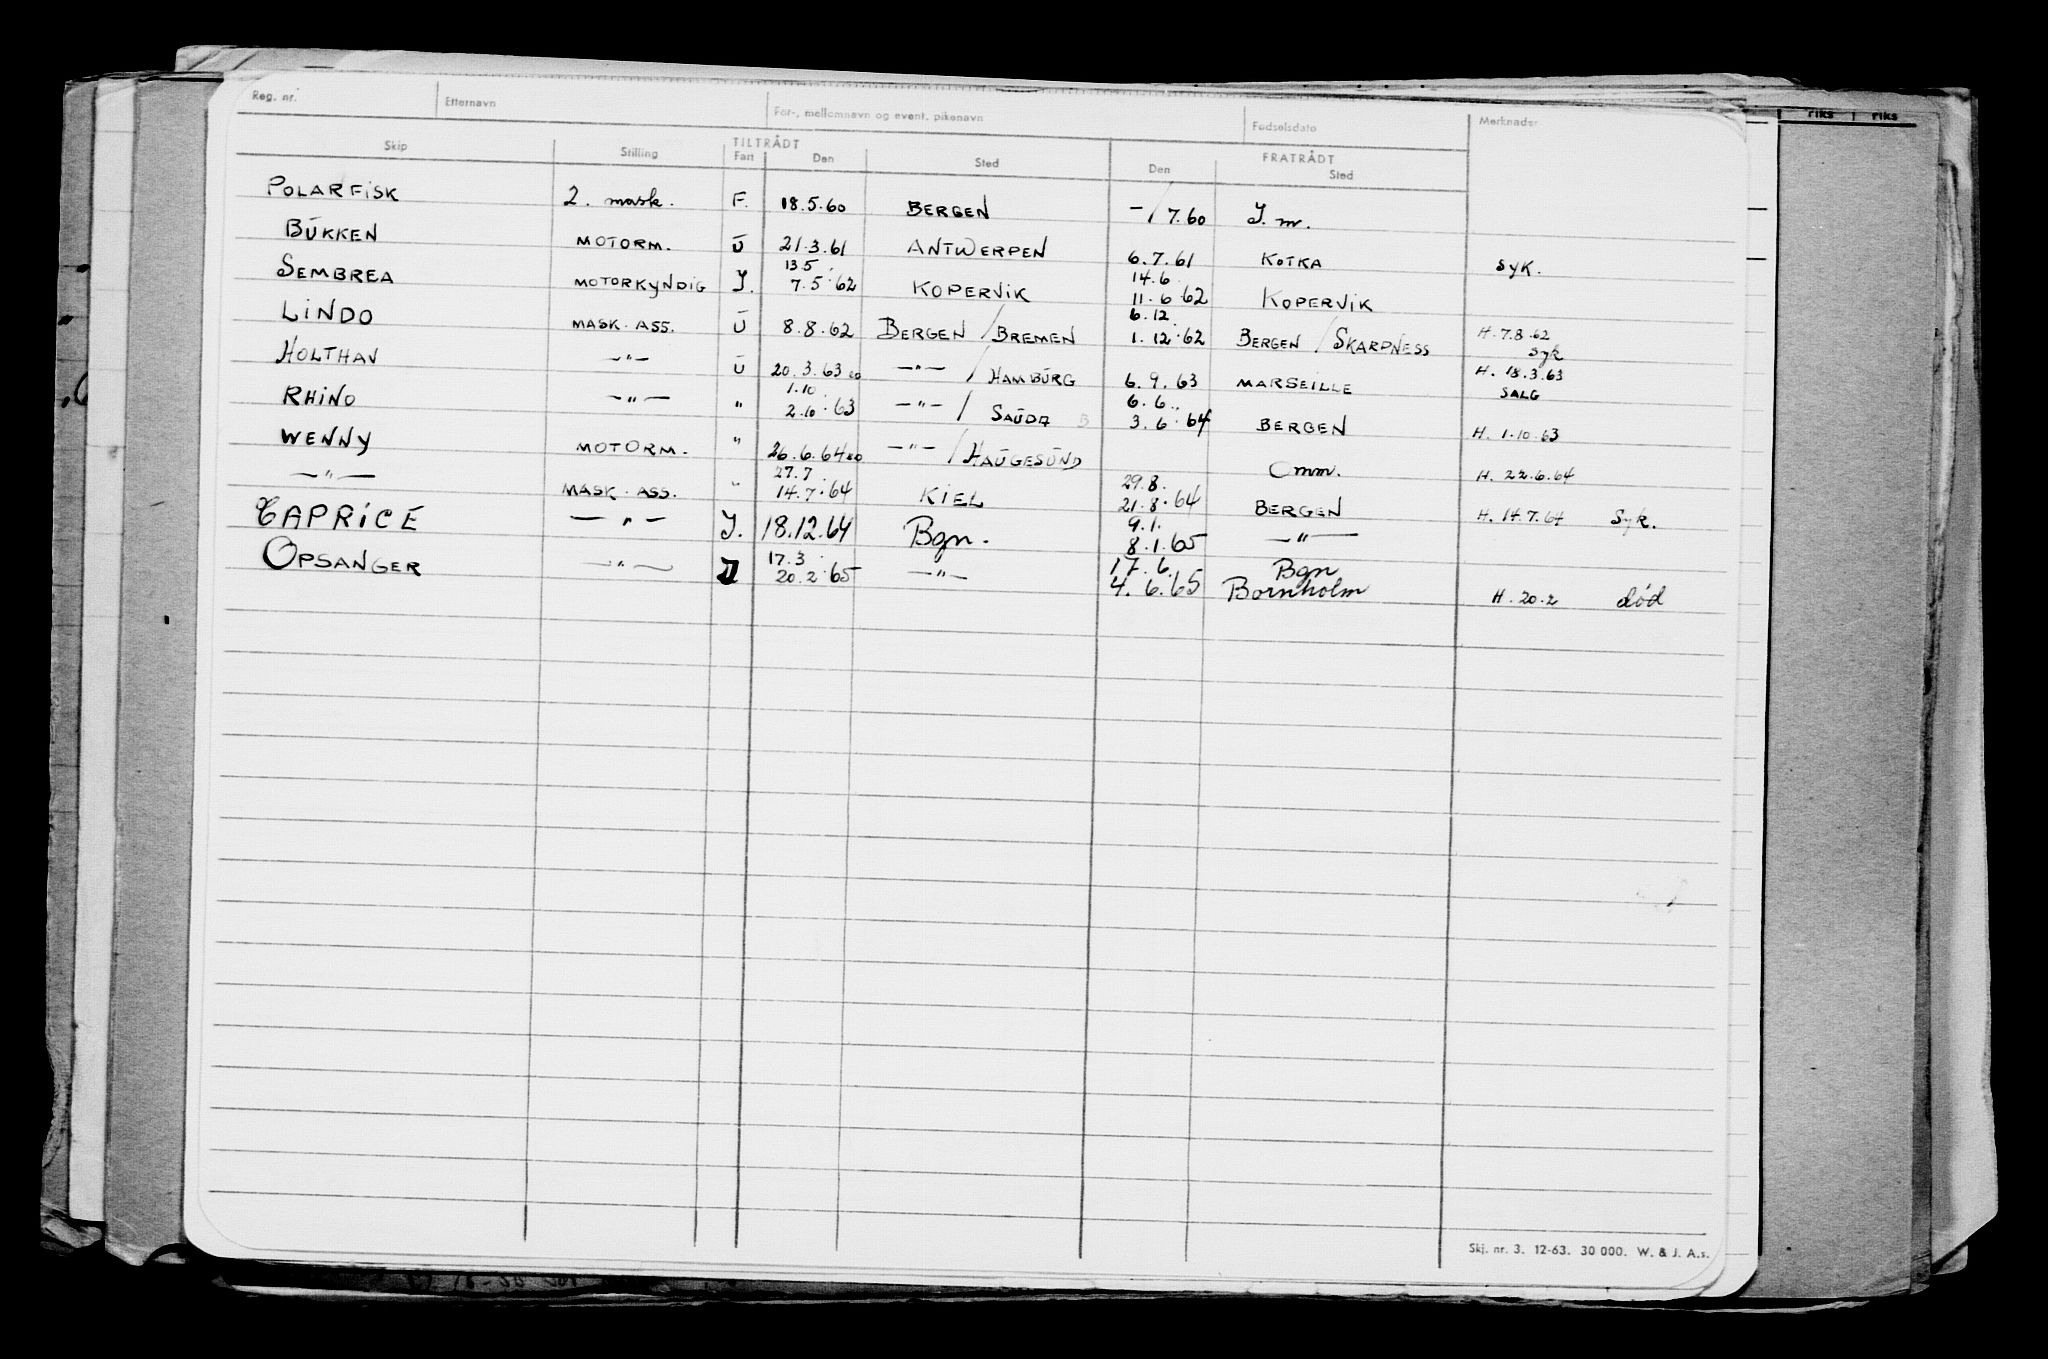 riks riks
Reg. nr. Etternavn For-, mellomnavn og event. pikenavn Fødselsdato Merknader
TILTRÅDT FRATRÅDT
Skip Stilling Fart Den Sted Den Sted
POLARFISK 2. mask. F. 18.5.60 BERGEN -/7.60 J. m.
BŪKKEN MOTORM. Ū 21.3.61 ANTWERPEN 6.7.61 KOTKA SYK.
13.5 14.6
SEMBREA MOTORKYNDIG J. 7.5.62 KOPERVIK 11.6.62 KOPERVIK
6.12
LINDO MASK. ASS. Ū 8.8.62 BERGEN / BREMEN 1.12.62 BERGEN / SKARPNESS H. 7.8.62
Syk
HOLTHAV —"— Ū 20.3.63 —"— / HAMBŪRG 6.9.63 MARSEILLE H. 18.3.63
SALG
1.10 6.6.
RHINO —"— " 2.10.63 —"— / SAŪDA B 3.6.64 BERGEN H. 1.10.63
WENNY MOTORM. " 26.6.64 —"— / HAŪGESŪND Omm. H. 22.6.64
27.7 29.8.
—"— MASK. ASS. " 14.7.64 KIEL 21.8.64 BERGEN H. 14.7.64 Syk.
9.1.
CAPRICE —"— J. 18.12.64 Bgn. 8.1.65 —"—
17.3 17.6. Bgn
OPSANGER —"— J 20.2.65 —"— 4.6.65 Bornholm H. 20.2 død
Skj. nr. 3. 12-63. 30 000. W. & J. A.s.